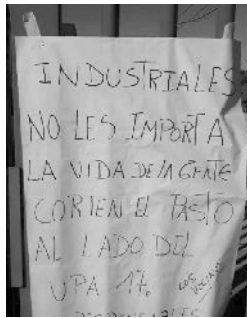 INDUSTRIALES
NO LES IMPORTA
LA VIDA DE LA GENTE
CORTEN EL PASTO
AL LADO DEL
UPA 17.
LOS VECINOS
RESPONSABLES